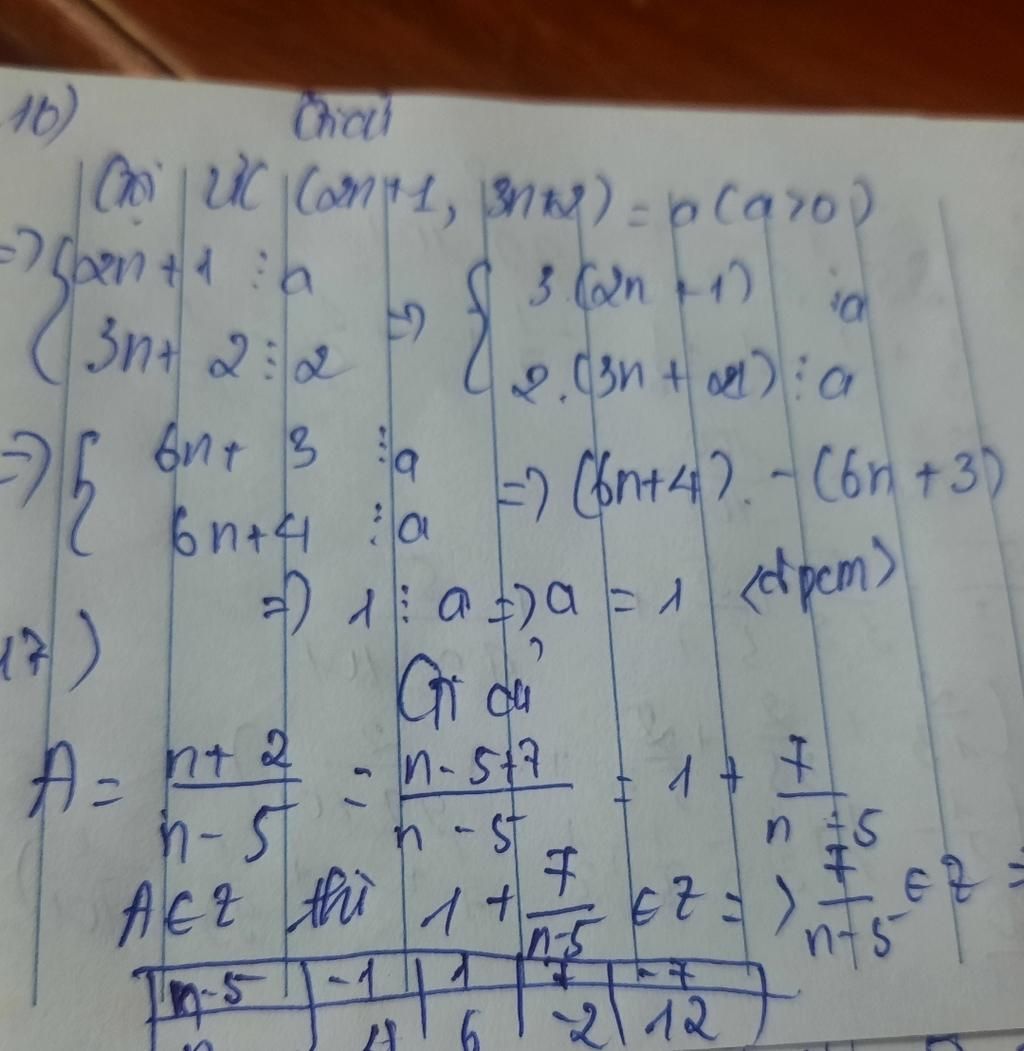 16) Giải
Gọi ƯC (2n+1, 3n+2) = a (a>0)
=> { 2n + 1 ⋮ a => { 3.(2n + 1) ⋮ a
3n + 2 ⋮ 2 2.(3n + 2) ⋮ a
=> { 6n + 3 ⋮ a => (6n+4). - (6n + 3)
6n+4 ⋮ a
=> 1 ⋮ a => a = 1 <đpcm>
17)
Giải
A = \frac{n+2}{n-5} = \frac{n-5+7}{n-5} = 1 + \frac{7}{n-5}
A ∈ Z thì 1 + \frac{7}{n-5} ∈ Z => \frac{7}{n-5} ∈ Z =
n-5 -1 1 7 -7
n 4 6 -2 12